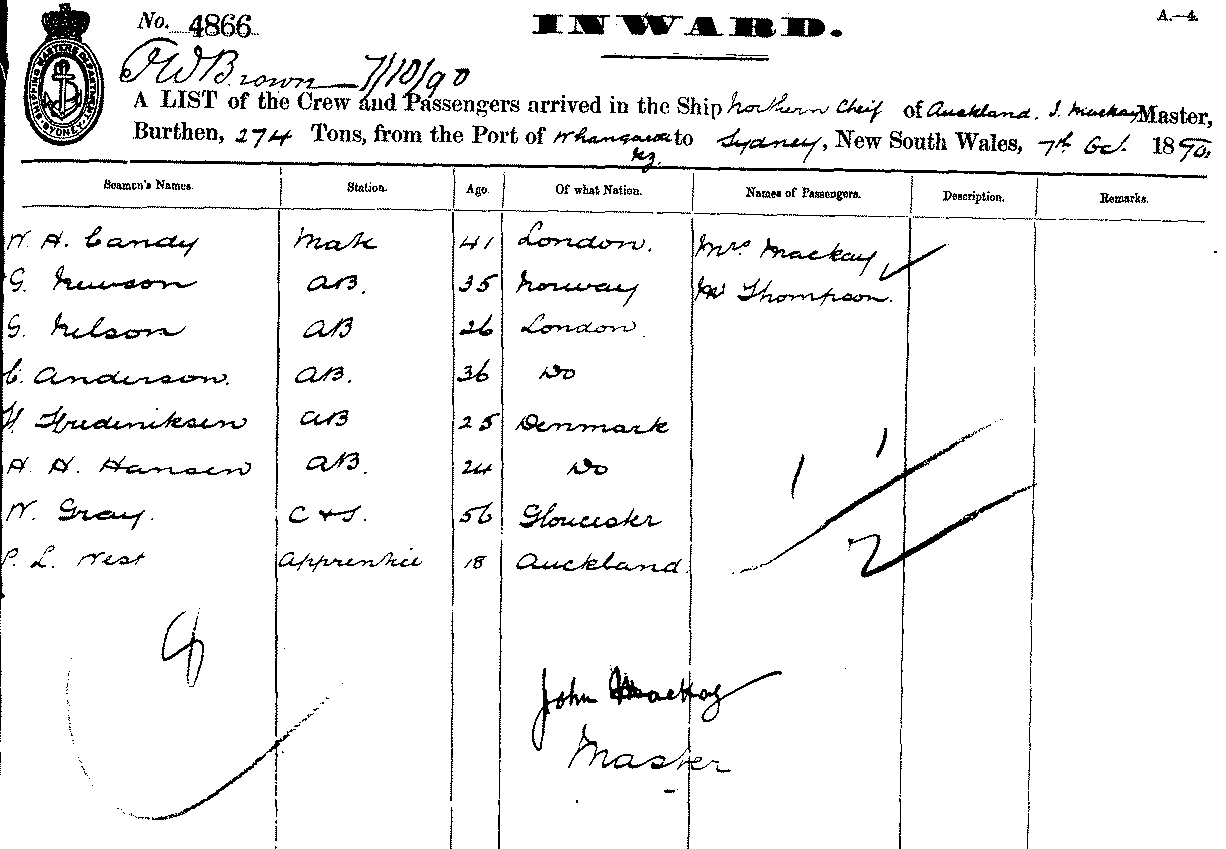 No. 4866
INWARD.
A.—4.
SHIPPING MASTERS DEPARTMENT SYDNEY
Brown 7/10/90
A LIST of the Crew and Passengers arrived in the Ship Northern Cheif of Auckland. J. Mackay Master,
Burthen, 274 Tons, from the Port of to Sydney, New South Wales, 7th Oct. 1890,
NZ.
Seamen's Names. Station. Age. Of what Nation. Names of Passengers. Description. Remarks.
W. H. Candy Mate 41 London. Mrs. Mackay
G. Newson AB. 35 Norway Thompson.
G. Nelson AB 26 London.
C. Anderson. AB. 36 Do
H. Frederiksen AB 25 Denmark
H. H. Hansen AB. 24 Do
W. Gray. C & S. 56 Gloucester
L. West Apprentice 18 Auckland.
1 1
2
8
John Mackay
Master